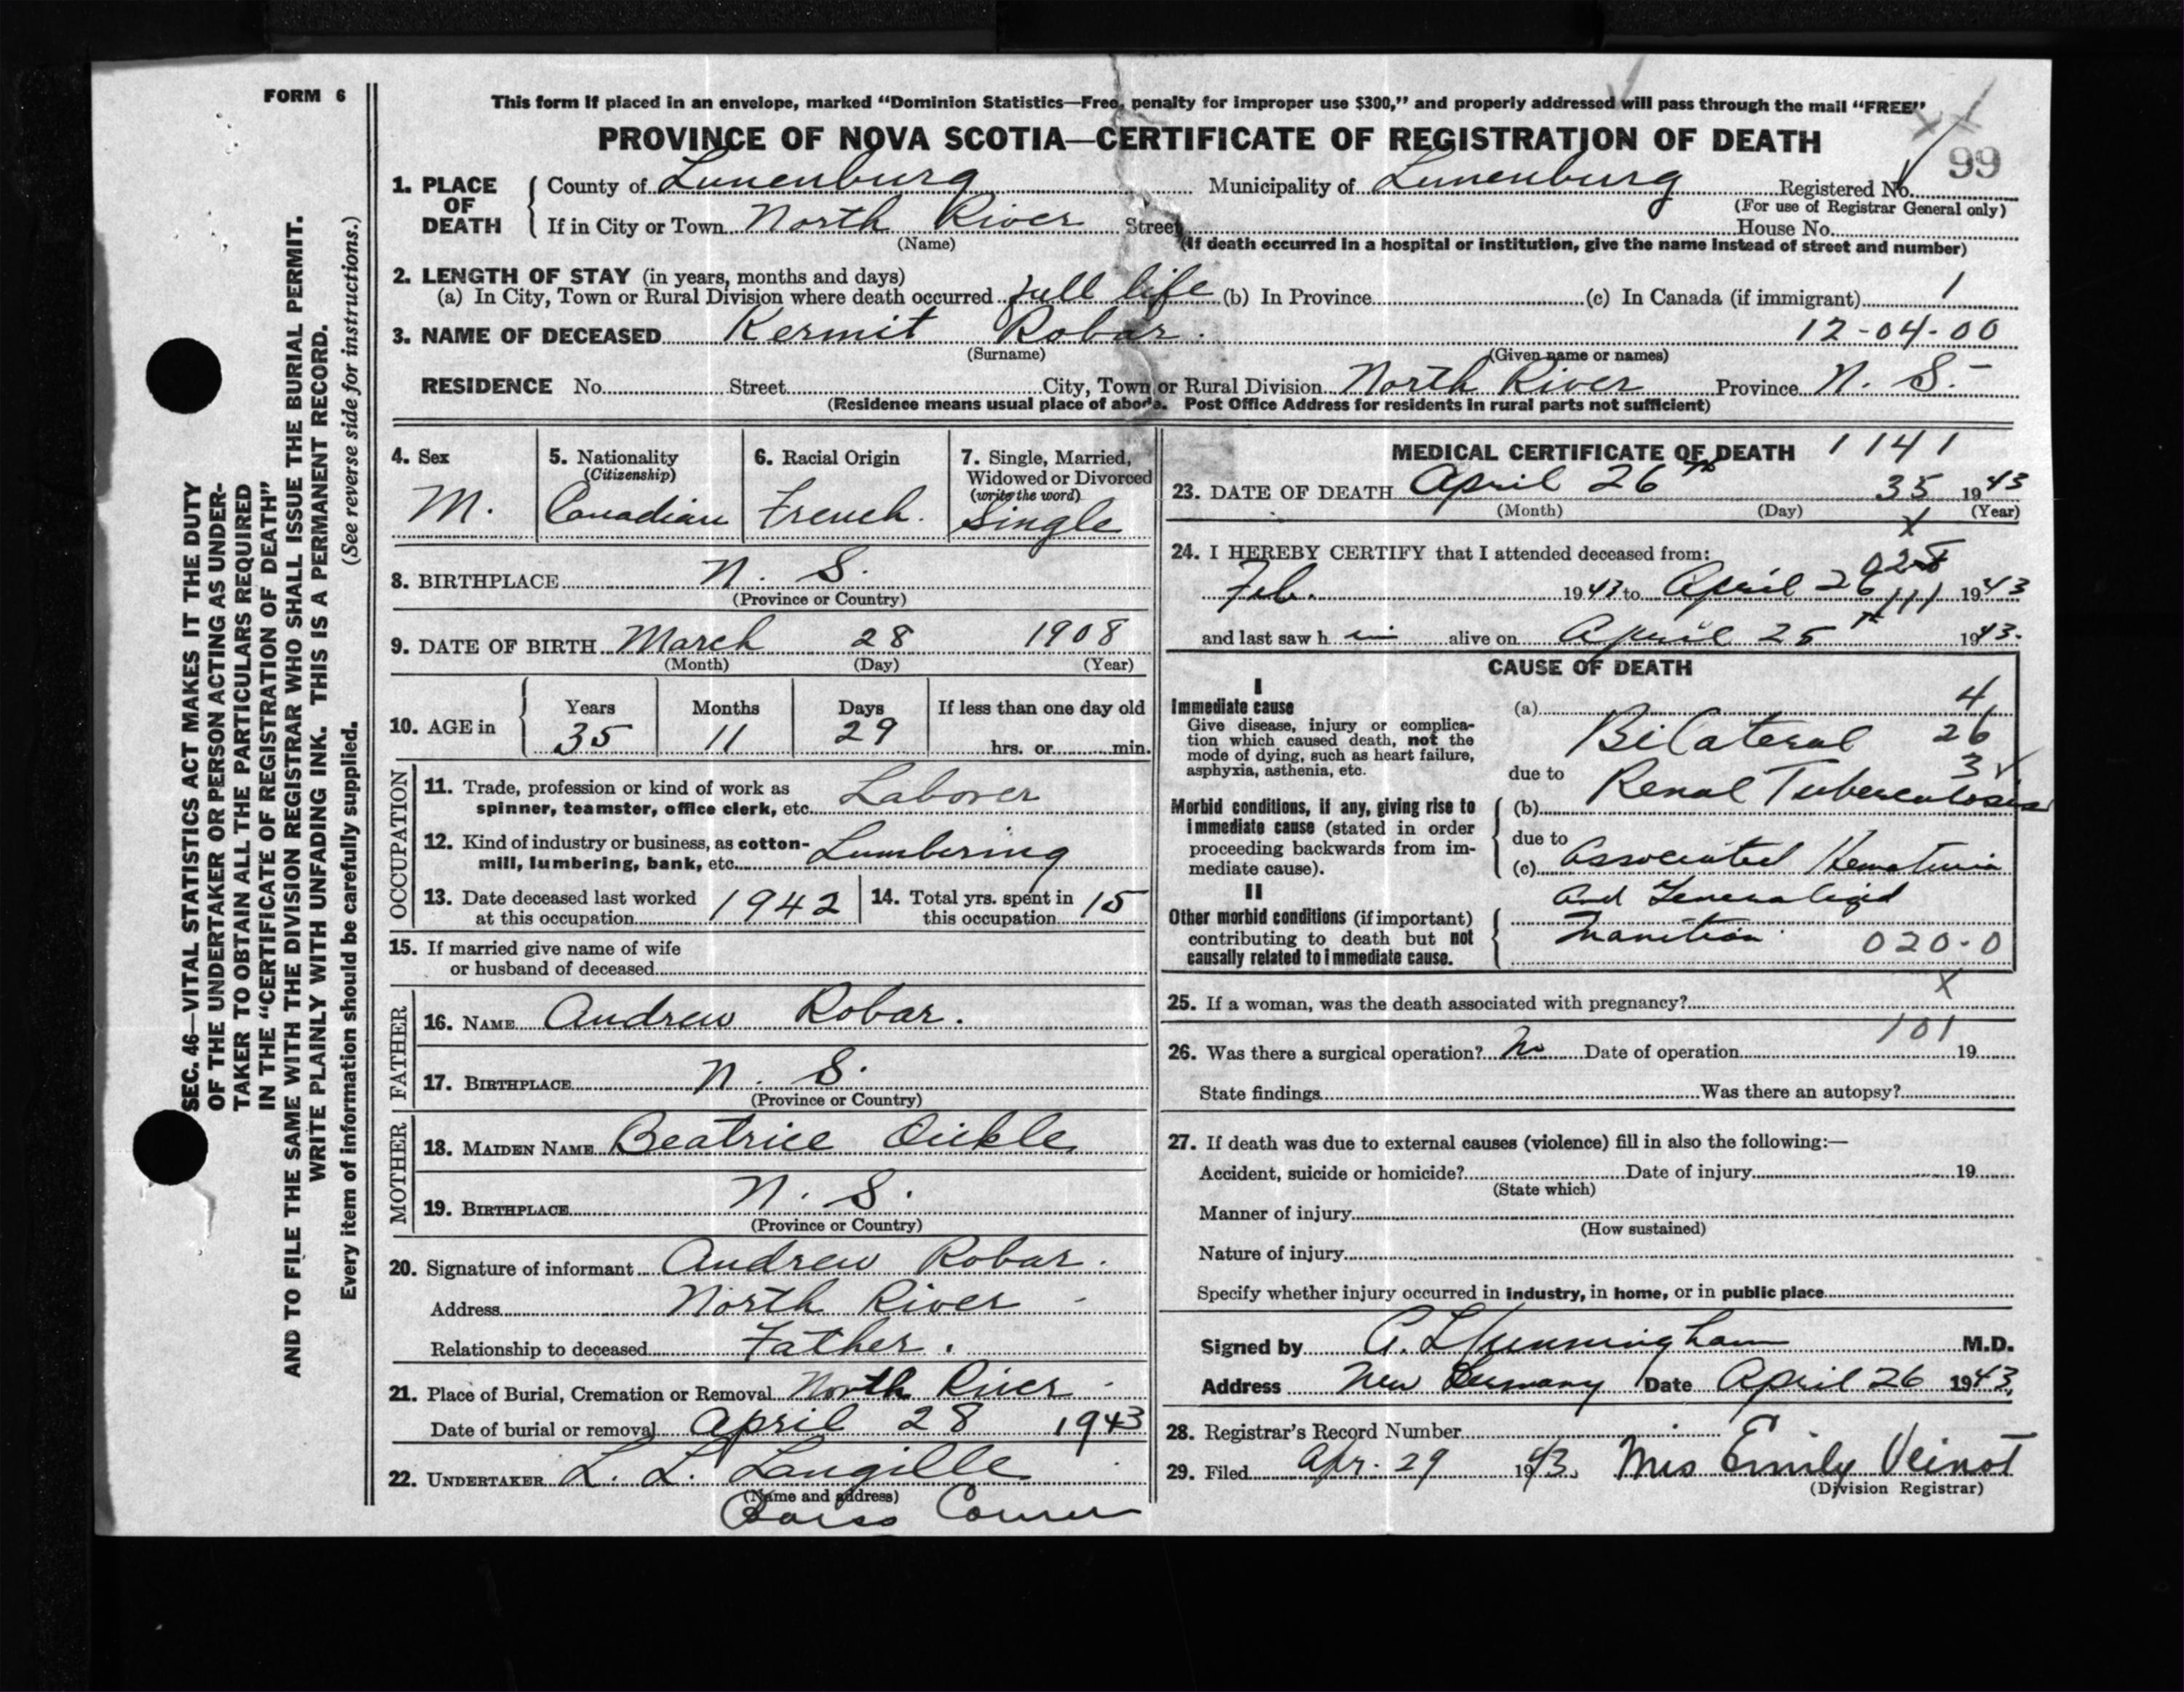 FORM 6
This form if placed in an envelope, marked “Dominion Statistics—Free, penalty for improper use $300,” and properly addressed will pass through the mail “FREE”
PROVINCE OF NOVA SCOTIA—CERTIFICATE OF REGISTRATION OF DEATH
99
1. PLACE OF DEATH
County of Lunenburg Municipality of Lunenburg Registered No.
(For use of Registrar General only)
If in City or Town North River Street House No.
(Name) (If death occurred in a hospital or institution, give the name instead of street and number)
2. LENGTH OF STAY (in years, months and days)
(a) In City, Town or Rural Division where death occurred full life (b) In Province (c) In Canada (if immigrant) 1
3. NAME OF DECEASED Kermit Robar. 12-04-00
(Surname) (Given name or names)
RESIDENCE No. Street City, Town or Rural Division North River Province N. S.-
(Residence means usual place of abode. Post Office Address for residents in rural parts not sufficient)
4. Sex M.
5. Nationality (Citizenship) Canadian
6. Racial Origin French.
7. Single, Married, Widowed or Divorced (write the word) Single
8. BIRTHPLACE N. S.
(Province or Country)
9. DATE OF BIRTH March 28 1908
(Month) (Day) (Year)
10. AGE in Years 35 Months 11 Days 29 If less than one day old hrs. or min.
OCCUPATION
11. Trade, profession or kind of work as spinner, teamster, office clerk, etc. Laborer
12. Kind of industry or business, as cotton-mill, lumbering, bank, etc. Lumbering
13. Date deceased last worked at this occupation 1942
14. Total yrs. spent in this occupation 15
15. If married give name of wife
or husband of deceased
FATHER
16. NAME Andrew Robar.
17. BIRTHPLACE N. S.
(Province or Country)
MOTHER
18. MAIDEN NAME Beatrice Oickle
19. BIRTHPLACE N. S.
(Province or Country)
20. Signature of informant Andrew Robar.
Address North River -
Relationship to deceased Father.
21. Place of Burial, Cremation or Removal North River -
Date of burial or removal April 28 1943
22. UNDERTAKER L. L. Langille
(Name and address)
Barss Corner
MEDICAL CERTIFICATE OF DEATH 1141
23. DATE OF DEATH April 26th 35 1943
(Month) (Day) (Year)
X
24. I HEREBY CERTIFY that I attended deceased from:
Feb. 1943 to April 26 111 1943
and last saw h im alive on April 25th 1943.
CAUSE OF DEATH
I
Immediate cause
Give disease, injury or complication which caused death, not the mode of dying, such as heart failure, asphyxia, asthenia, etc.
(a) 4
Bilateral 26
due to 3
(b) Renal Tuberculosis
Morbid conditions, if any, giving rise to immediate cause (stated in order proceeding backwards from immediate cause).
due to
(c) Associated Hematuria
II
and Generalized
Other morbid conditions (if important) contributing to death but not causally related to immediate cause.
Inanition 020-0
X
25. If a woman, was the death associated with pregnancy?
101
26. Was there a surgical operation? No Date of operation 19
State findings Was there an autopsy?
27. If death was due to external causes (violence) fill in also the following:—
Accident, suicide or homicide? Date of injury 19
(State which)
Manner of injury
(How sustained)
Nature of injury
Specify whether injury occurred in industry, in home, or in public place
Signed by Cunningham M.D.
Address New Germany Date April 26 1943.
28. Registrar’s Record Number
29. Filed Apr. 29 1943. Mrs Emily Veinot
(Division Registrar)
SEC. 46—VITAL STATISTICS ACT MAKES IT THE DUTY
OF THE UNDERTAKER OR PERSON ACTING AS UNDER-
TAKER TO OBTAIN ALL THE PARTICULARS REQUIRED
IN THE “CERTIFICATE OF REGISTRATION OF DEATH”
AND TO FILE THE SAME WITH THE DIVISION REGISTRAR WHO SHALL ISSUE THE BURIAL PERMIT.
WRITE PLAINLY WITH UNFADING INK. THIS IS A PERMANENT RECORD.
Every item of information should be carefully supplied. (See reverse side for instructions.)